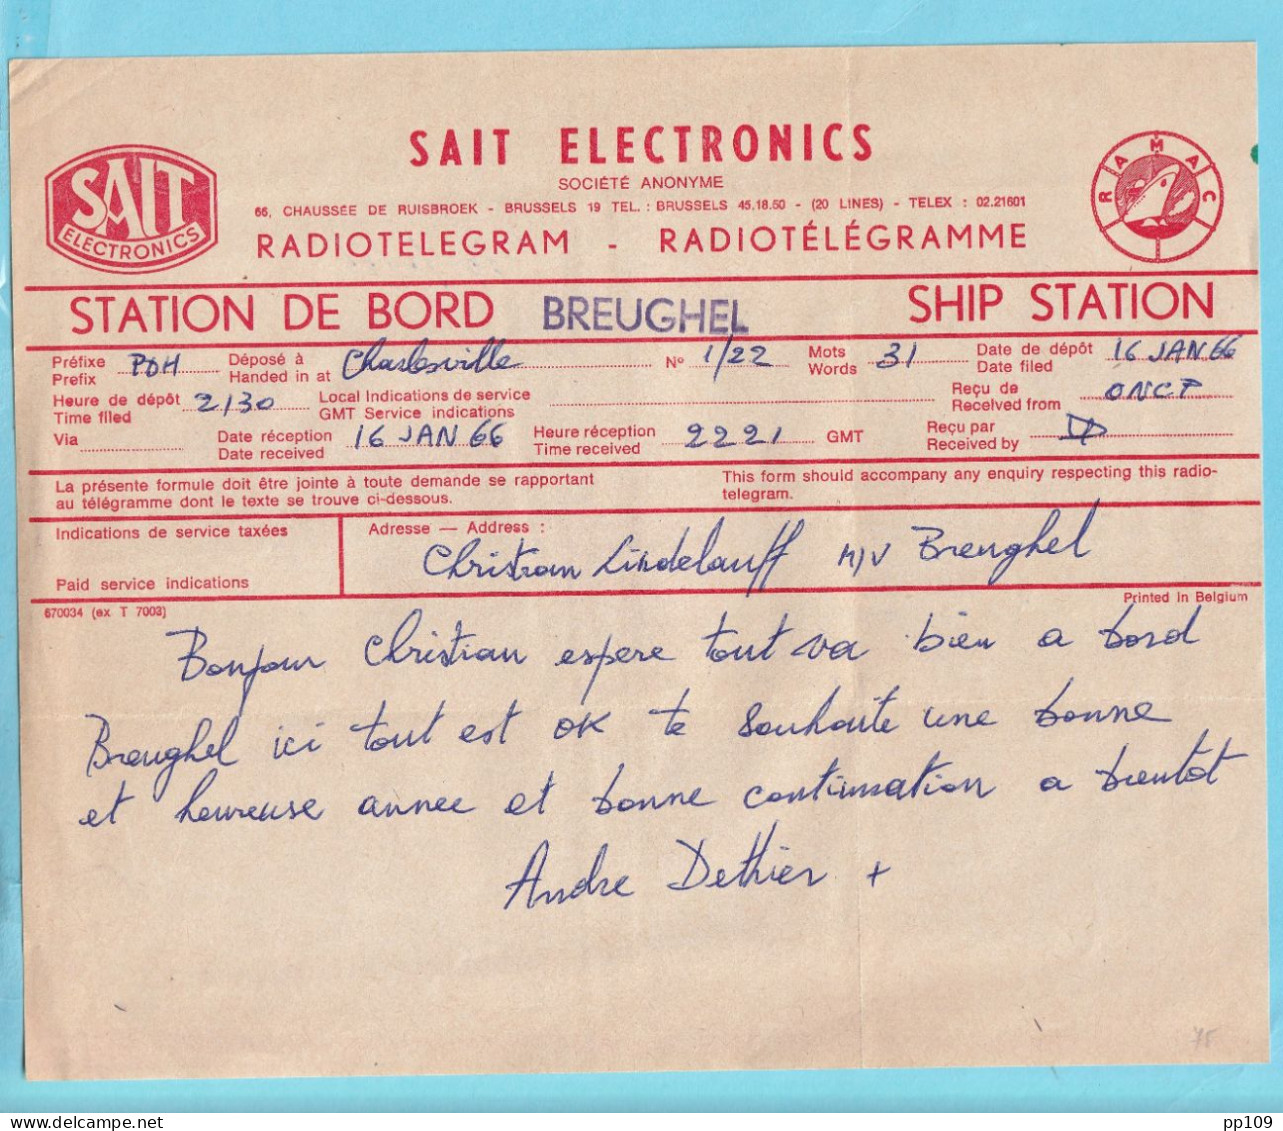 SAIT ELECTRONICS
SOCIÉTÉ ANONYME
66, CHAUSSÉE DE RUISBROEK - BRUSSELS 19 TEL. : BRUSSELS 45.18.50 - (20 LINES) - TELEX : 02.21601
RADIOTELEGRAM - RADIOTÉLÉGRAMME
SAIT
ELECTRONICS
RAMAC
STATION DE BORD BREUGHEL SHIP STATION
Préfixe
Prefix PDH Déposé à
Handed in at Charlesville N° 1/22 Mots
Words 31 Date de dépôt
Date filed 16 JAN 66
Heure de dépôt
Time filed 2130 Local Indications de service
GMT Service indications Reçu de
Received from ONCP
Via Date réception
Date received 16 JAN 66 Heure réception
Time received 2221 GMT Reçu par
Received by
La présente formule doit être jointe à toute demande se rapportant
au télégramme dont le texte se trouve ci-dessous.
This form should accompany any enquiry respecting this radio-
telegram.
Indications de service taxées
Paid service indications
Adresse — Address :
Christian Lindelauff M/V Breughel
670034 (ex T 7003)
Printed in Belgium
Bonjour Christian espere tout va bien a bord
Breughel ici tout est OK te souhaite une bonne
et heureuse annee et bonne continuation a bientot
Andre Dethier +
75
www.delcampe.net
pp109